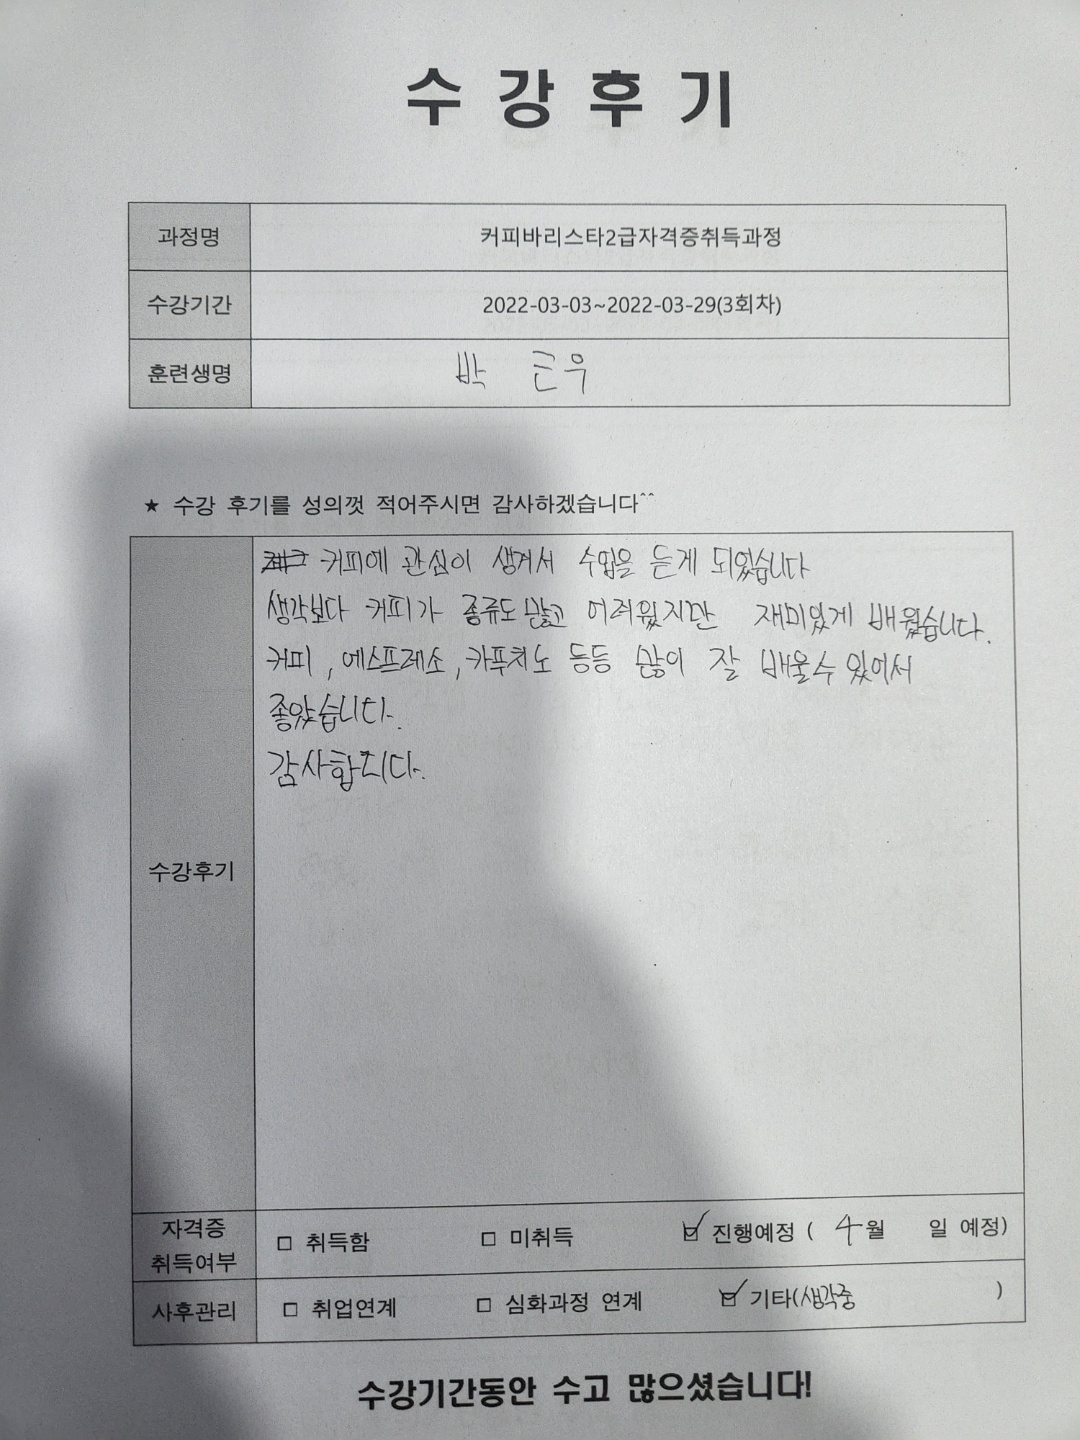 수 강 후 기
과정명 커피바리스타2급자격증취득과정
수강기간 2022-03-03~2022-03-29(3회차)
훈련생명 박 근우
★ 수강 후기를 성의껏 적어주시면 감사하겠습니다^^
커피에 관심이 생겨서 수업을 듣게 되었습니다
생각보다 커피가 종류도 많고 어려웠지만 재미있게 배웠습니다.
커피, 에스프레소, 카푸치노 등등 많이 잘 배울수 있어서
좋았습니다.
감사합니다.
수강후기
자격증
취득여부
□ 취득함 □ 미취득 ☑ 진행예정 ( 4월 일 예정)
사후관리 □ 취업연계 □ 심화과정 연계 ☑ 기타(생각중 )
수강기간동안 수고 많으셨습니다!